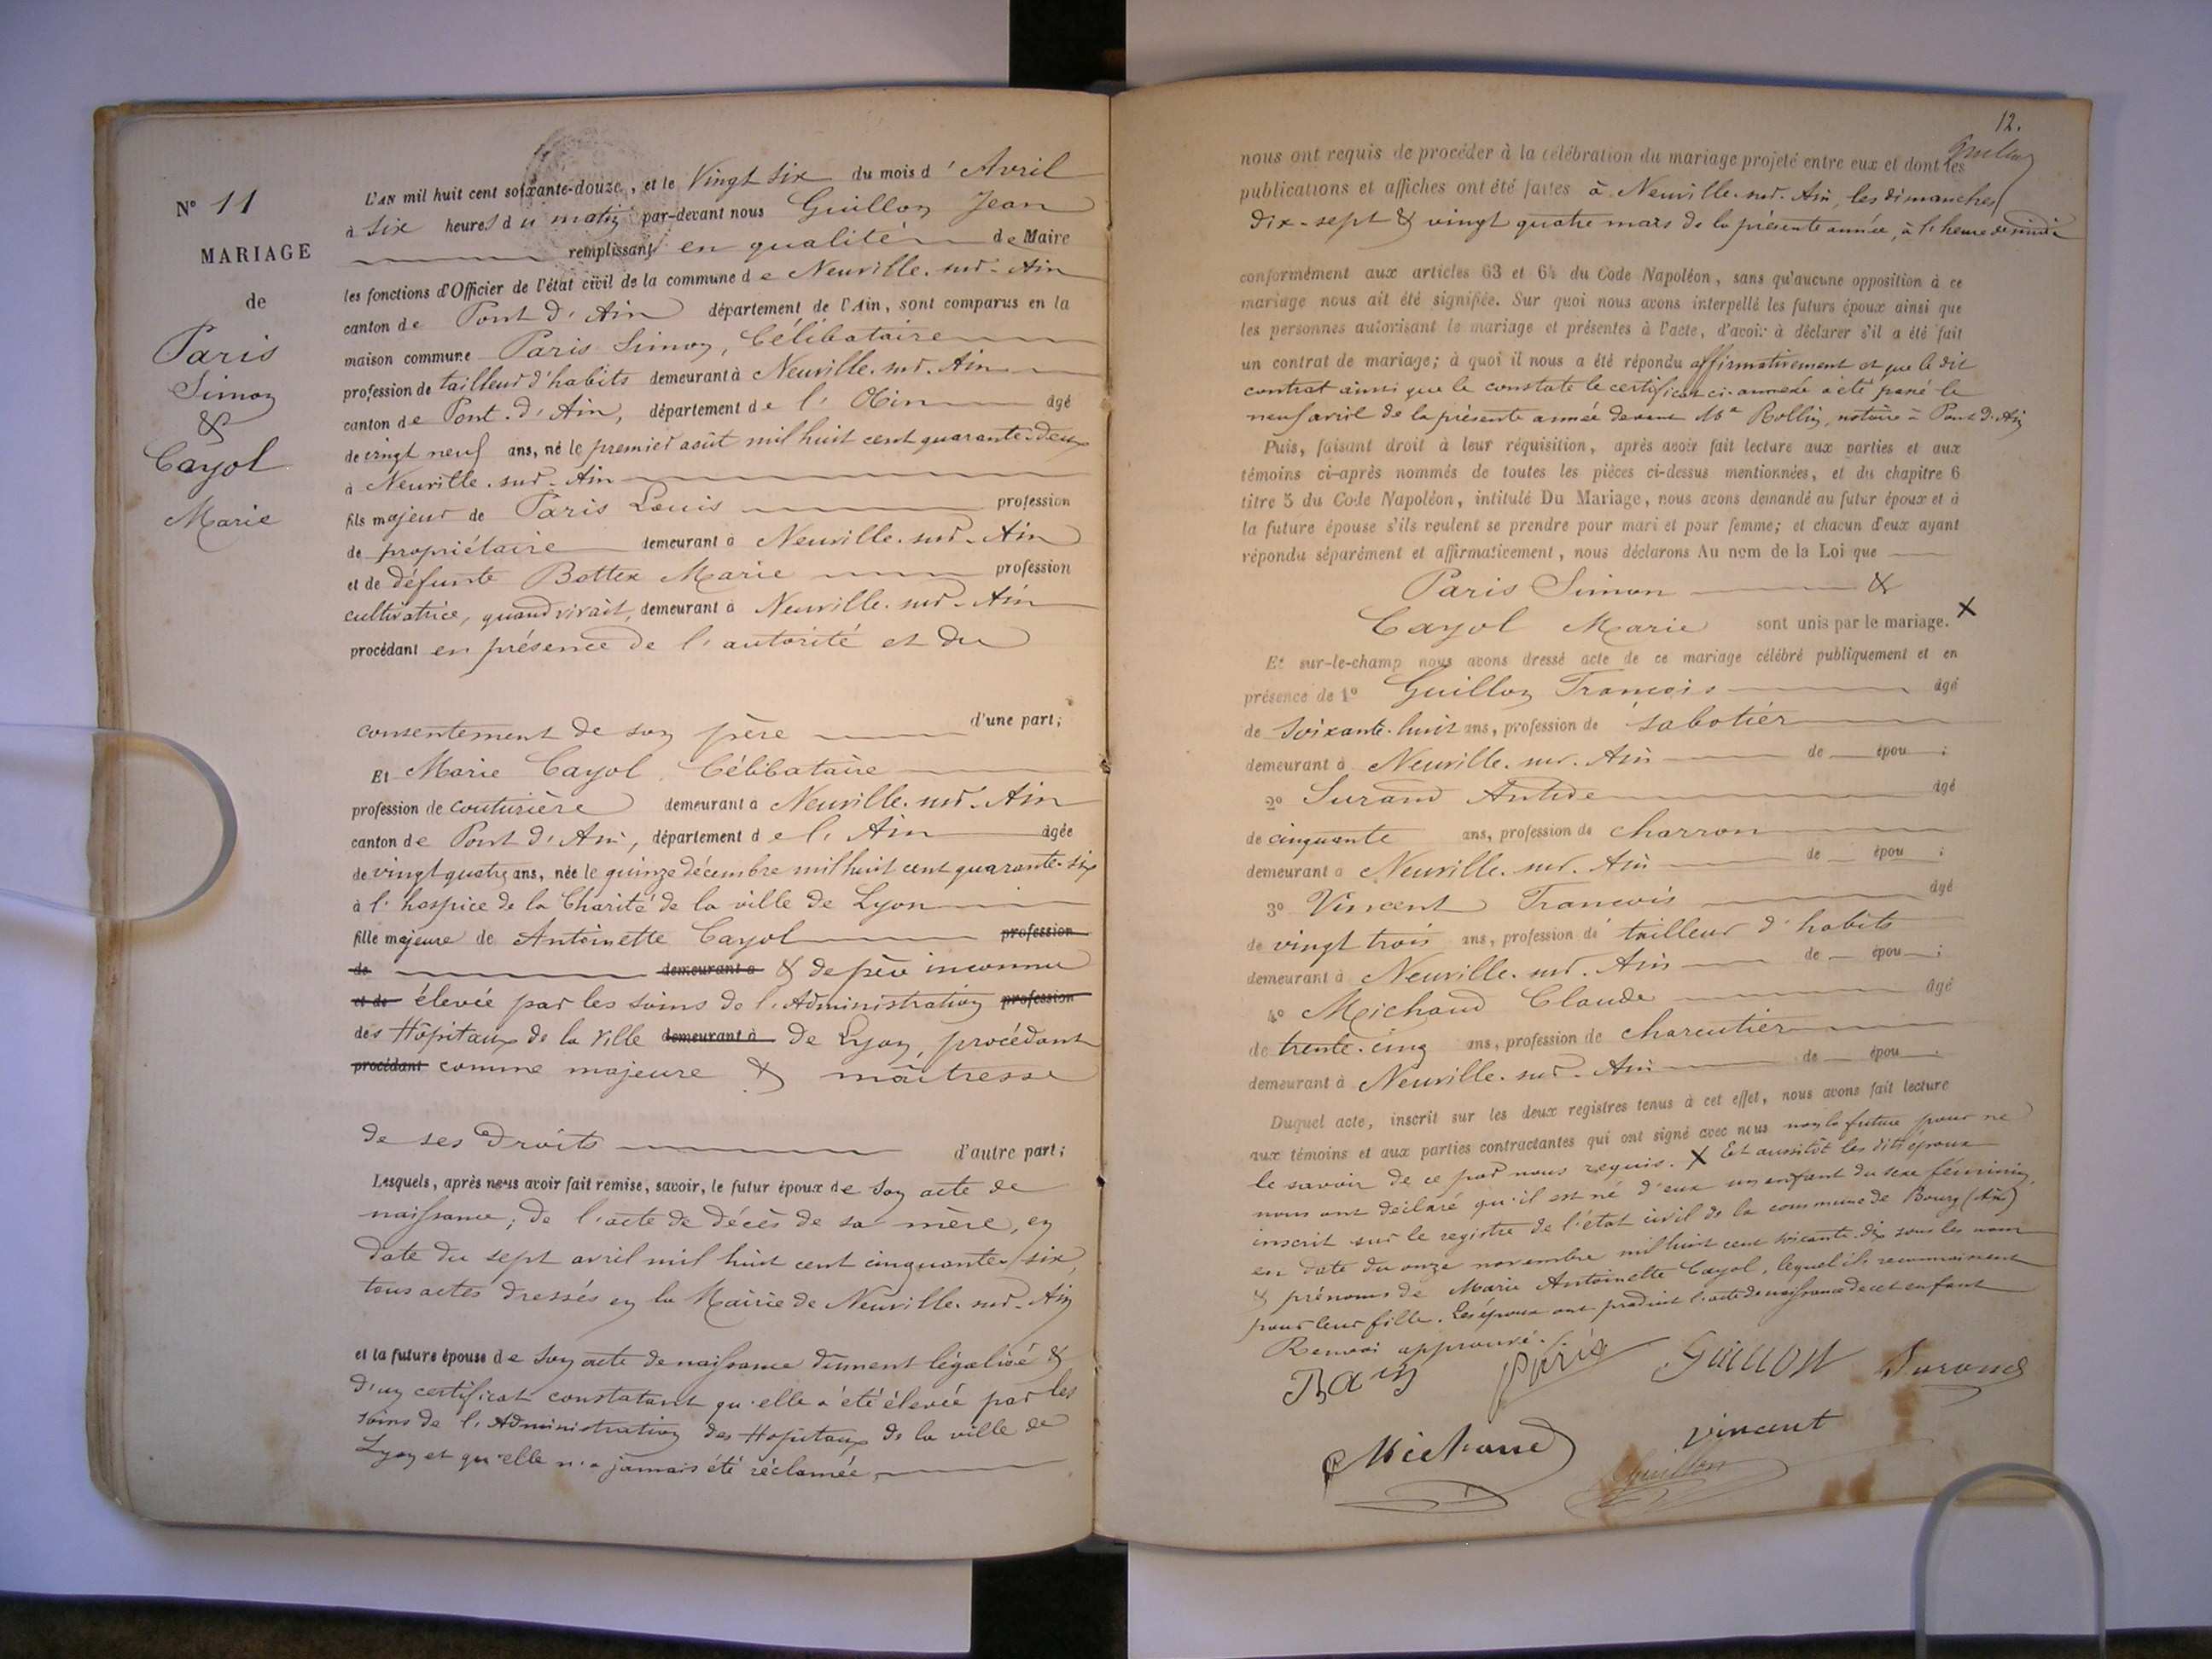 N° 11
MARIAGE
de
Paris
Simon
&
Cayol
Marie
L'AN mil huit cent soixante-douze, et le Vingt six du mois d'Avril
à six heures du matin par-devant nous Guillon Jean
remplissant en qualité de Maire
les fonctions d'Officier de l'état civil de la commune de Neuville-sur-Ain
canton de Pont d'Ain département de l'Ain, sont comparus en la
maison commune Paris Simon, Célibataire
profession de tailleur d'habits demeurant à Neuville-sur-Ain
canton de Pont-d'Ain, département de l'Ain âgé
de vingt neuf ans, né le premier août mil huit cent quarante-deux
à Neuville-sur-Ain
fils majeur de Paris Louis profession
de propriétaire demeurant à Neuville-sur-Ain
et de défunte Bottex Marie profession
cultivatrice, quand vivait, demeurant à Neuville-sur-Ain
procédant en présence de l'autorité et du
consentement de son père d'une part;
Et Marie Cayol, Célibataire
profession de couturière demeurant à Neuville-sur-Ain
canton de Pont d'Ain, département de l'Ain âgée
de vingt quatre ans, née le quinze décembre mil huit cent quarante-six
à l'hospice de la Charité de la ville de Lyon
fille majeure de Antoinette Cayol profession
de demeurant à & de père inconnu
et de élevée par les soins de l'Administration profession
des Hôpitaux de la Ville demeurant à de Lyon, procédant
procédant comme majeure & maîtresse
de ses Droits d'autre part;
Lesquels, après nous avoir fait remise, savoir, le futur époux de son acte de
naissance; de l'acte de décès de sa mère, en
date du sept avril mil huit cent cinquante-six,
tous actes dressés en la Mairie de Neuville-sur-Ain
et la future épouse de son acte de naissance dûment légalisé &
d'un certificat constatant qu'elle a été élevée par les
soins de l'Administration des Hopitaux de la ville de
Lyon et qu'elle n'a jamais été réclamée,
12.
Guillon
nous ont requis de procéder à la célébration du mariage projeté entre eux et dont les
publications et affiches ont été faites à Neuville-sur-Ain, les dimanches
dix-sept & vingt quatre mars de la présente année, à l'heure de midi
conformément aux articles 63 et 64 du Code Napoléon, sans qu'aucune opposition à ce
mariage nous ait été signifiée. Sur quoi nous avons interpellé les futurs époux ainsi que
les personnes autorisant le mariage et présentes à l'acte, d'avoir à déclarer s'il a été fait
un contrat de mariage; à quoi il nous a été répondu affirmativement et que le dit
contrat ainsi que le constate le certificat ci-annexé a été passé le
neuf avril de la présente année devant Me Rollin, notaire à Pont-d'Ain
Puis, faisant droit à leur réquisition, après avoir fait lecture aux parties et aux
témoins ci-après nommés de toutes les pièces ci-dessus mentionnées, et du chapitre 6
titre 5 du Code Napoléon, intitulé Du Mariage, nous avons demandé au futur époux et à
la future épouse s'ils veulent se prendre pour mari et pour femme; et chacun d'eux ayant
répondu séparément et affirmativement, nous déclarons Au nom de la Loi que
Paris Simon &
Cayol Marie sont unis par le mariage. X
Et sur-le-champ nous avons dressé acte de ce mariage célébré publiquement et en
présence de 1° Guillon François âgé
de Soixante-huit ans, profession de sabotier
demeurant à Neuville-sur-Ain de épou ;
2° Durand Antide âgé
de cinquante ans, profession de charron
demeurant à Neuville-sur-Ain de épou ;
3° Vincent François âgé
de vingt trois ans, profession de tailleur d'habits
demeurant à Neuville-sur-Ain de épou ;
4° Michaud Claude âgé
de trente-cinq ans, profession de charcutier
demeurant à Neuville-sur-Ain de épou .
Duquel acte, inscrit sur les deux registres tenus à cet effet, nous avons fait lecture
aux témoins et aux parties contractantes qui ont signé avec nous non la future pour ne
le savoir de ce par nous requis. X Et aussitôt les dits époux
nous ont déclaré qu'il est né d'eux un enfant du sexe féminin,
inscrit sur le registre de l'état civil de la commune de Bourg (Ain)
en date du onze novembre mil huit cent soixante-dix sous les nom
& prénoms de Marie Antoinette Cayol, lequel ils reconnaissent
pour leur fille. Les époux ont produit l'acte de naissance de cet enfant
Renvoi approuvé.
Paris Guillon Durand
Michaud vincent
Guillon